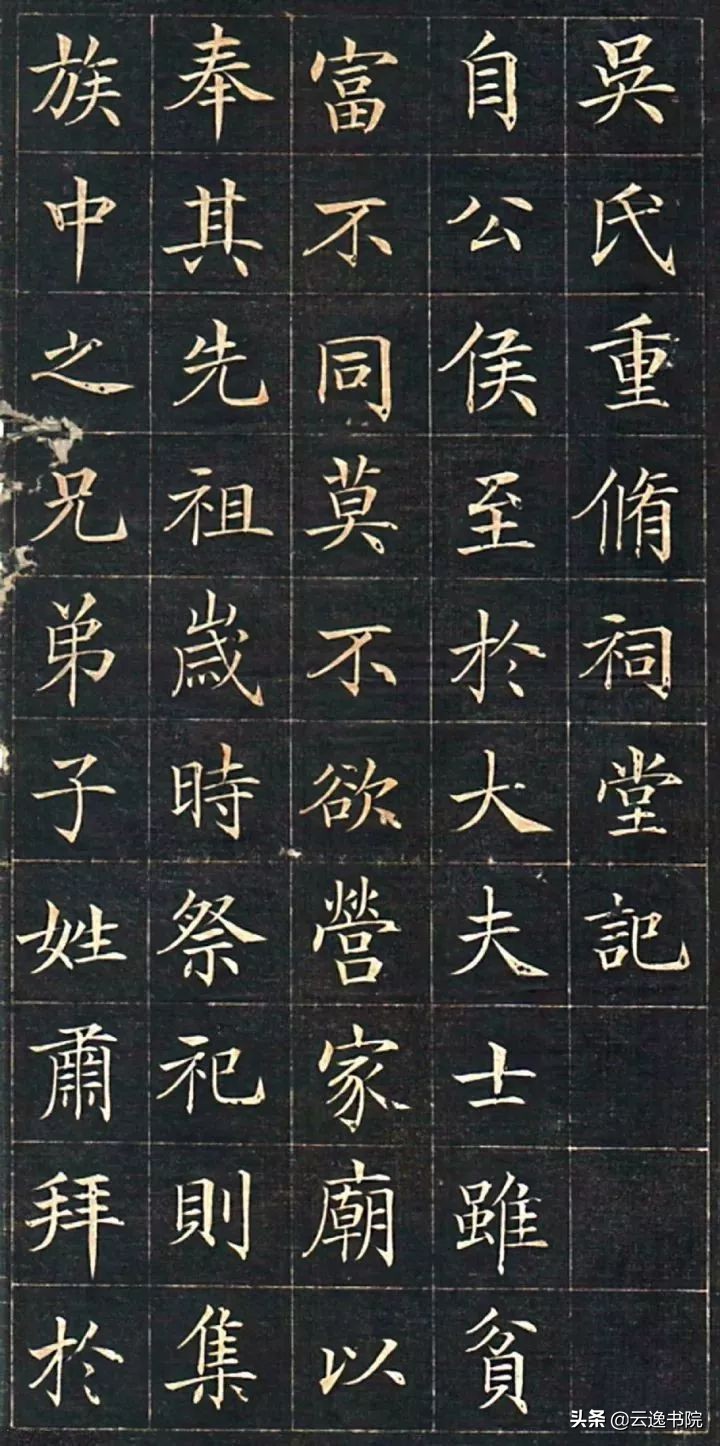 吳氏重脩祠堂記
自公侯至於大夫士雖貧
富不同莫不欲營家廟以
奉其先祖歲時祭祀則集
族中之兄弟子姓肅拜於
头条 @云逸书院